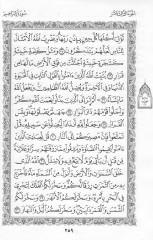 الجزء الثالث عشر
سورة إبراهيم
تُؤْتِىٓ أُكُلَهَا كُلَّ حِينٍۭ بِإِذْنِ رَبِّهَا ۗ وَيَضْرِبُ ٱللَّهُ ٱلْأَمْثَالَ
لِلنَّاسِ لَعَلَّهُمْ يَتَذَكَّرُونَ ٢٥ وَمَثَلُ كَلِمَةٍ خَبِيثَةٍ
كَشَجَرَةٍ خَبِيثَةٍ ٱجْتُثَّتْ مِن فَوْقِ ٱلْأَرْضِ مَا لَهَا مِن
قَرَارٍ ٢٦ يُثَبِّتُ ٱللَّهُ ٱلَّذِينَ ءَامَنُوا۟ بِٱلْقَوْلِ ٱلثَّابِتِ فِى
ٱلْحَيَوٰةِ ٱلدُّنْيَا وَفِى ٱلْءَاخِرَةِ ۖ وَيُضِلُّ ٱللَّهُ ٱلظَّٰلِمِينَ ۚ وَيَفْعَلُ
ٱللَّهُ مَا يَشَآءُ ٢٧ أَلَمْ تَرَ إِلَى ٱلَّذِينَ بَدَّلُوا۟ نِعْمَتَ ٱللَّهِ كُفْرًا
وَأَحَلُّوا۟ قَوْمَهُمْ دَارَ ٱلْبَوَارِ ٢٨ جَهَنَّمَ يَصْلَوْنَهَا ۖ وَبِئْسَ
ٱلْقَرَارُ ٢٩ وَجَعَلُوا۟ لِلَّهِ أَندَادًا لِّيُضِلُّوا۟ عَن سَبِيلِهِۦ ۗ قُلْ
تَمَتَّعُوا۟ فَإِنَّ مَصِيرَكُمْ إِلَى ٱلنَّارِ ٣٠ قُل لِّعِبَادِىَ ٱلَّذِينَ
ءَامَنُوا۟ يُقِيمُوا۟ ٱلصَّلَوٰةَ وَيُنفِقُوا۟ مِمَّا رَزَقْنَٰهُمْ سِرًّا وَعَلَانِيَةً
مِّن قَبْلِ أَن يَأْتِىَ يَوْمٌ لَّا بَيْعٌ فِيهِ وَلَا خِلَٰلٌ ٣١ ٱللَّهُ ٱلَّذِى
خَلَقَ ٱلسَّمَٰوَٰتِ وَٱلْأَرْضَ وَأَنزَلَ مِنَ ٱلسَّمَآءِ مَآءً فَأَخْرَجَ بِهِۦ
مِنَ ٱلثَّمَرَٰتِ رِزْقًا لَّكُمْ ۖ وَسَخَّرَ لَكُمُ ٱلْفُلْكَ لِتَجْرِىَ
فِى ٱلْبَحْرِ بِأَمْرِهِۦ ۖ وَسَخَّرَ لَكُمُ ٱلْأَنْهَٰرَ ٣٢ وَسَخَّرَ لَكُمُ
ٱلشَّمْسَ وَٱلْقَمَرَ دَآئِبَيْنِ ۖ وَسَخَّرَ لَكُمُ ٱلَّيْلَ وَٱلنَّهَارَ ٣٣
٢٥٩